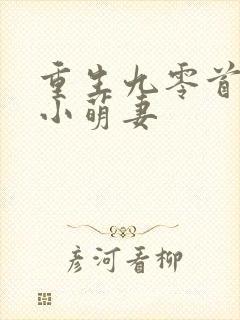 重生九零首
小萌妻
彦河看柳